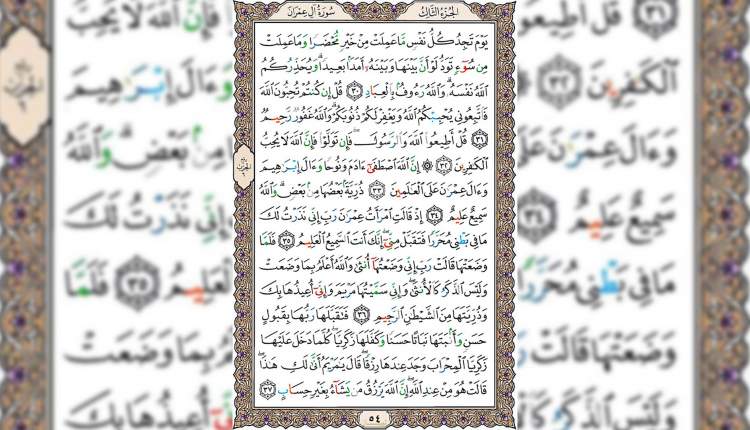 سُورَةُ آلِ عِمْرَانَ الجُزْءُ الثَّالِثُ
يَوْمَ تَجِدُ كُلُّ نَفْسٍ مَّا عَمِلَتْ مِنْ خَيْرٍ مُّحْضَرًا وَمَا عَمِلَتْ
مِن سُوٓءٍ تَوَدُّ لَوْ أَنَّ بَيْنَهَا وَبَيْنَهُۥٓ أَمَدًۢا بَعِيدًا ۗ وَيُحَذِّرُكُمُ
ٱللَّهُ نَفْسَهُۥ ۗ وَٱللَّهُ رَءُوفٌۢ بِٱلْعِبَادِ ٣٠ قُلْ إِن كُنتُمْ تُحِبُّونَ ٱللَّهَ
فَٱتَّبِعُونِى يُحْبِبْكُمُ ٱللَّهُ وَيَغْفِرْ لَكُمْ ذُنُوبَكُمْ ۗ وَٱللَّهُ غَفُورٌ رَّحِيمٌ
٣١ قُلْ أَطِيعُوا۟ ٱللَّهَ وَٱلرَّسُولَ ۖ فَإِن تَوَلَّوْا۟ فَإِنَّ ٱللَّهَ لَا يُحِبُّ
ٱلْكَٰفِرِينَ ٣٢ ۞ إِنَّ ٱللَّهَ ٱصْطَفَىٰٓ ءَادَمَ وَنُوحًا وَءَالَ إِبْرَٰهِيمَ
وَءَالَ عِمْرَٰنَ عَلَى ٱلْعَٰلَمِينَ ٣٣ ذُرِّيَّةًۢ بَعْضُهَا مِنۢ بَعْضٍ ۗ وَٱللَّهُ
سَمِيعٌ عَلِيمٌ ٣٤ إِذْ قَالَتِ ٱمْرَأَتُ عِمْرَٰنَ رَبِّ إِنِّى نَذَرْتُ لَكَ
مَا فِى بَطْنِى مُحَرَّرًا فَتَقَبَّلْ مِنِّىٓ ۖ إِنَّكَ أَنتَ ٱلسَّمِيعُ ٱلْعَلِيمُ ٣٥ فَلَمَّا
وَضَعَتْهَا قَالَتْ رَبِّ إِنِّى وَضَعْتُهَآ أُنثَىٰ وَٱللَّهُ أَعْلَمُ بِمَا وَضَعَتْ
وَلَيْسَ ٱلذَّكَرُ كَٱلْأُنثَىٰ ۖ وَإِنِّى سَمَّيْتُهَا مَرْيَمَ وَإِنِّىٓ أُعِيذُهَا بِكَ
وَذُرِّيَّتَهَا مِنَ ٱلشَّيْطَٰنِ ٱلرَّجِيمِ ٣٦ فَتَقَبَّلَهَا رَبُّهَا بِقَبُولٍ
حَسَنٍ وَأَنۢبَتَهَا نَبَاتًا حَسَنًا وَكَفَّلَهَا زَكَرِيَّا ۖ كُلَّمَا دَخَلَ عَلَيْهَا
زَكَرِيَّا ٱلْمِحْرَابَ وَجَدَ عِندَهَا رِزْقًا ۖ قَالَ يَٰمَرْيَمُ أَنَّىٰ لَكِ هَٰذَا ۖ
قَالَتْ هُوَ مِنْ عِندِ ٱللَّهِ ۖ إِنَّ ٱللَّهَ يَرْزُقُ مَن يَشَآءُ بِغَيْرِ حِسَابٍ ٣٧
٥٤